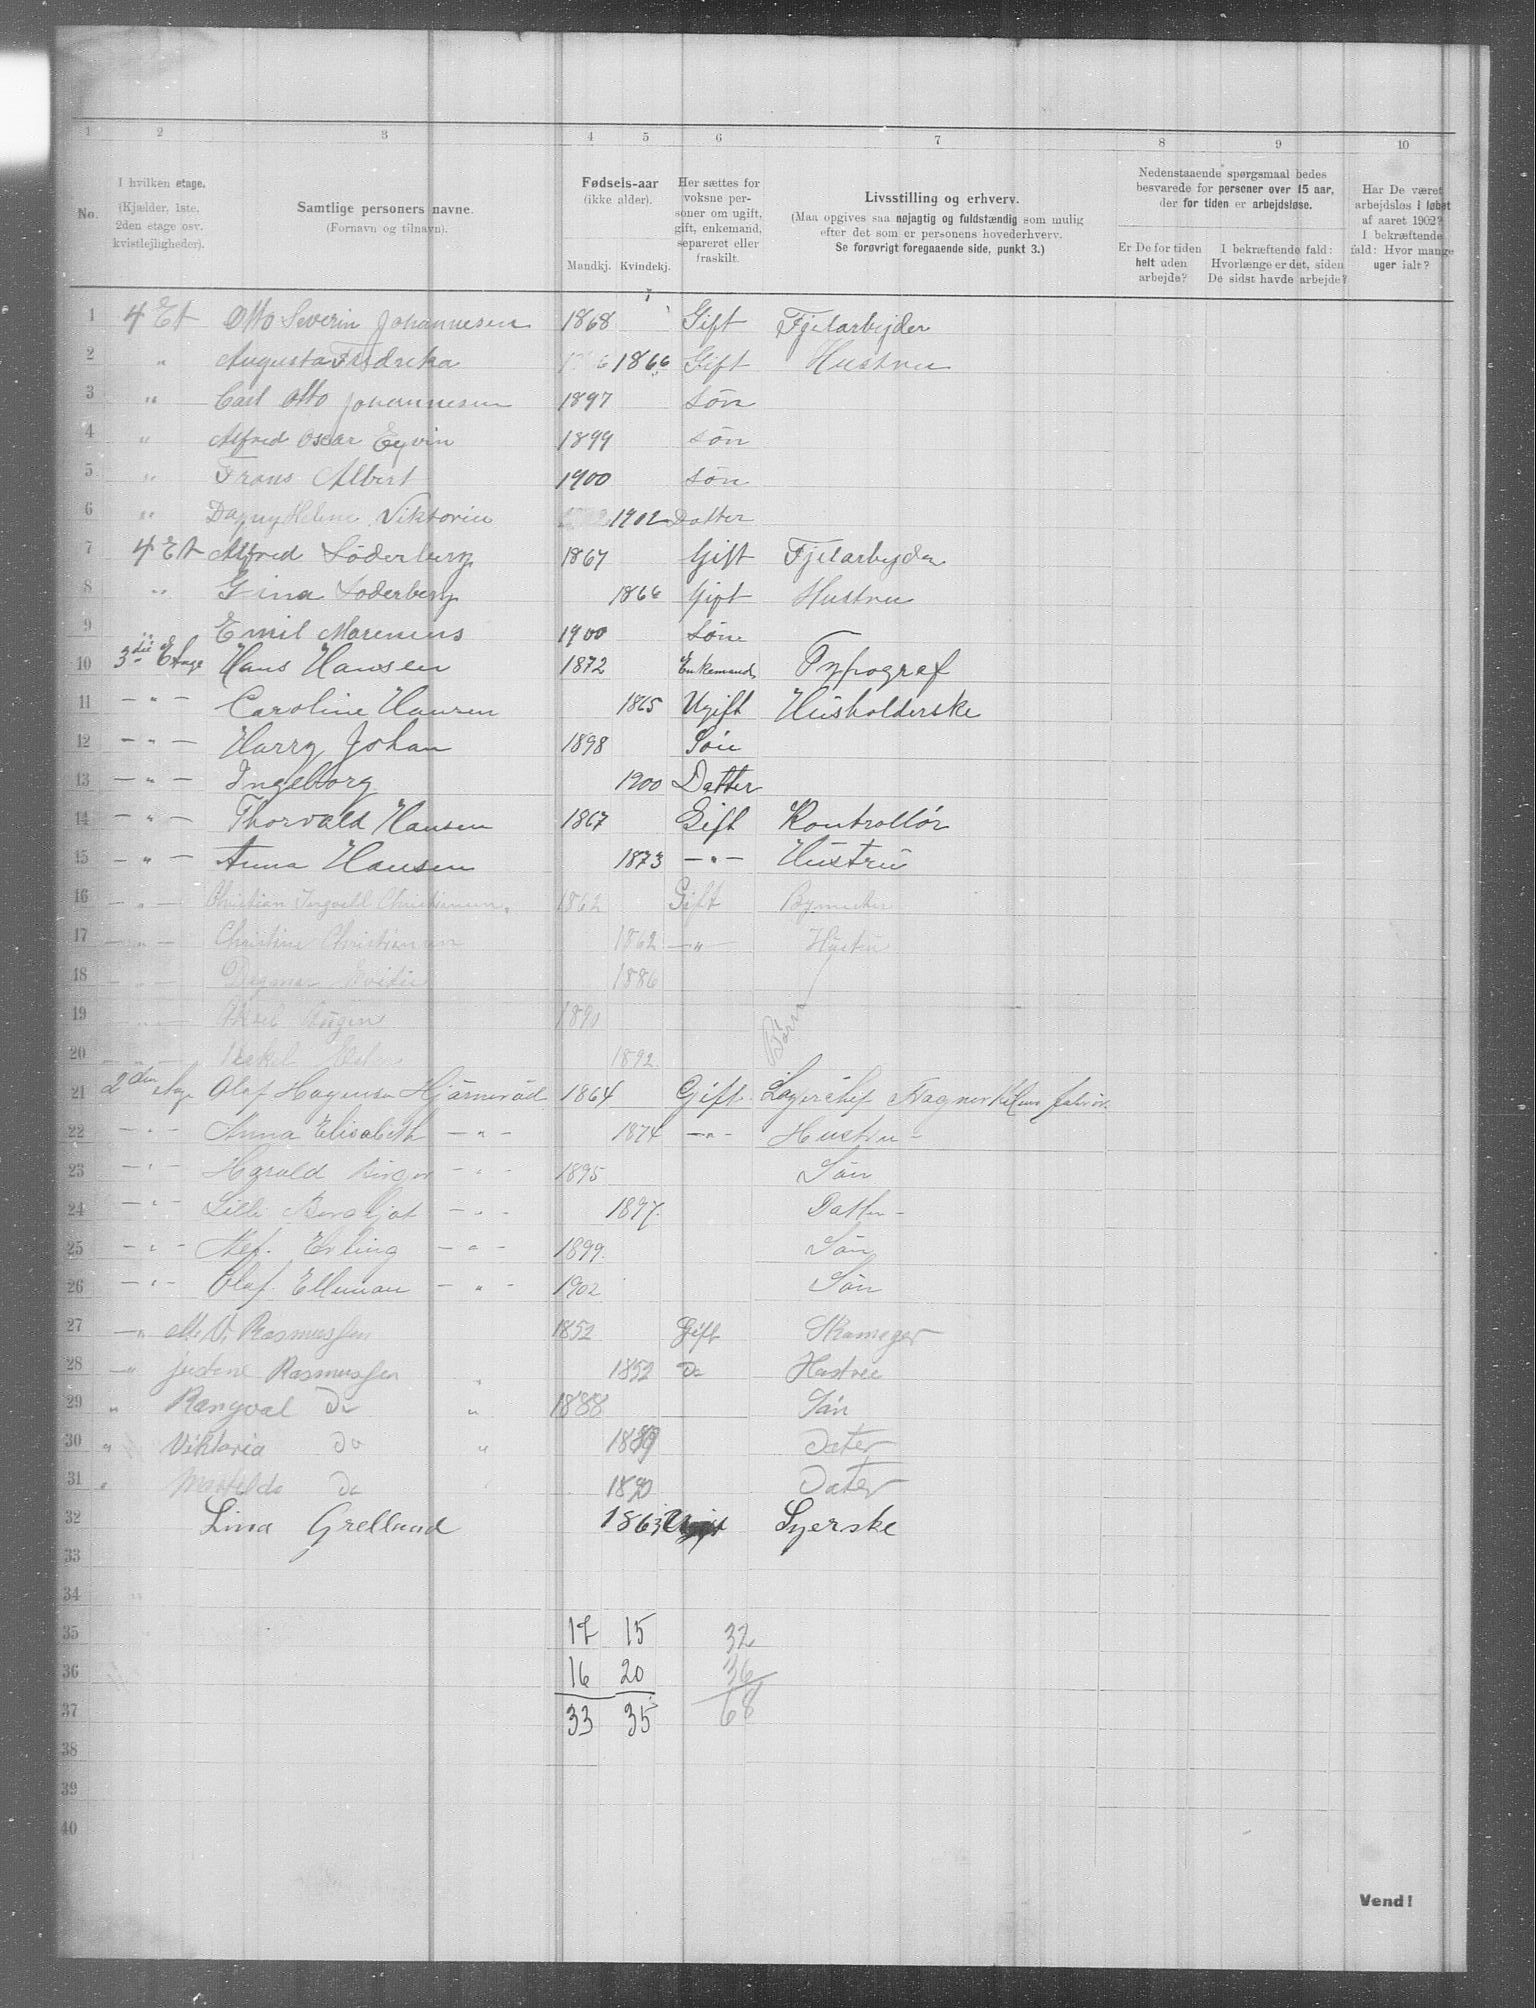 1 2 3 4 5 6 7 8 9 10
No.
I hvilken etage.
(Kjælder, 1ste,
2den etage osv.
kvistlejligheder).
Samtlige personers navne.
(Fornavn og tilnavn).
Fødsels-aar
(ikke alder).
Mandkj. Kvindekj.
Her sættes for
voksne per-
soner om ugift,
gift, enkemand,
separeret eller
fraskilt.
Livsstilling og erhverv.
(Maa opgives saa nøjagtig og fuldstændig som mulig
efter det som er personens hovederhverv.
Se forøvrigt foregaaende side, punkt 3.)
Nedenstaaende spørgsmaal bedes
besvarede for personer over 15 aar,
der for tiden er arbejdsløse.
Er De for tiden
helt uden
arbejde?
I bekræftende fald:
Hvorlænge er det, siden
De sidst havde arbejde?
Har De været
arbejdsløs i løbet
af aaret 1902?
I bekræftende
fald: Hvor mange
uger ialt?
1 4 Et Otto Severin Johannesen 1868 Gift Fjelarbejder
2 " Augusta Fredrika 1866 Gift Hustru
3 " Carl Otto Johannesen 1897 Søn
4 " Alfred Oscar Eyvin 1899 Søn
5 " Frans Albert 1900 Søn
6 " Dagny Helene Viktoria 1902 Datter
7 4 Et Alfred Söderberg 1867 Gift Fjelarbyder
8 " Gina Söderberg 1866 Gift Hustru
9 " Emil Marenius 1900 Søn
10 3die Etage Hans Hansen 1872 Enkemand Typograf
11 — " — Caroline Hansen 1865 Ugift Husholderske
12 — " — Harry Johan 1898 Søn
13 — " — Ingeborg 1900 Datter
14 — " — Thorvald Hansen 1867 Gift Kontrollör
15 — " — Anna Hansen 1873 — " — Hustru
16 — " — Christian Ingvald Christiansen 1862 Gift
17 — " — Christine Christiansen 1862 — " — Hustru
18 — " — Dagmar 1886
19 — " — Aksel 1890 Børn
20 — " — 1892
21 2den Etage Olaf Hagensen Hjärneröd 1864 Gift Lagerchef
22 — " — Anna Elisabeth — " — 1874 — " — Hustru
23 — " — Harald Birger — " — 1895 Sön
24 — " — Lilli Bergljot — " — 1897 Datter
25 — " — Alef. Erling — " — 1899 Sön
26 — " — Olaf. Elleman — " — 1902 Sön
27 — " V. Rasmussen 1852 Gift Skomager
28 — " Justine Rasmussen " 1852 Do Hustrue
29 " Rangval Do " 1888 Sön
30 " Viktoria Do " 1889 Dater
31 " Mathilda Do 1890 Dater
32 Lina Grellund 1863 Ugift Syerske
33
34
35 17 15 32
36 16 20 36
37 33 35 68
38
39
40
Vend!